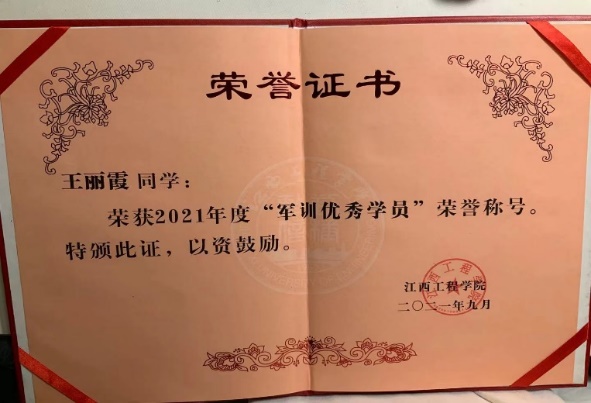 荣誉证书
王丽霞 同学：
荣获2021年度“军训优秀学员”荣誉称号。
特颁此证，以资鼓励。
江西工程学院
二〇二一年九月
江西工程学院